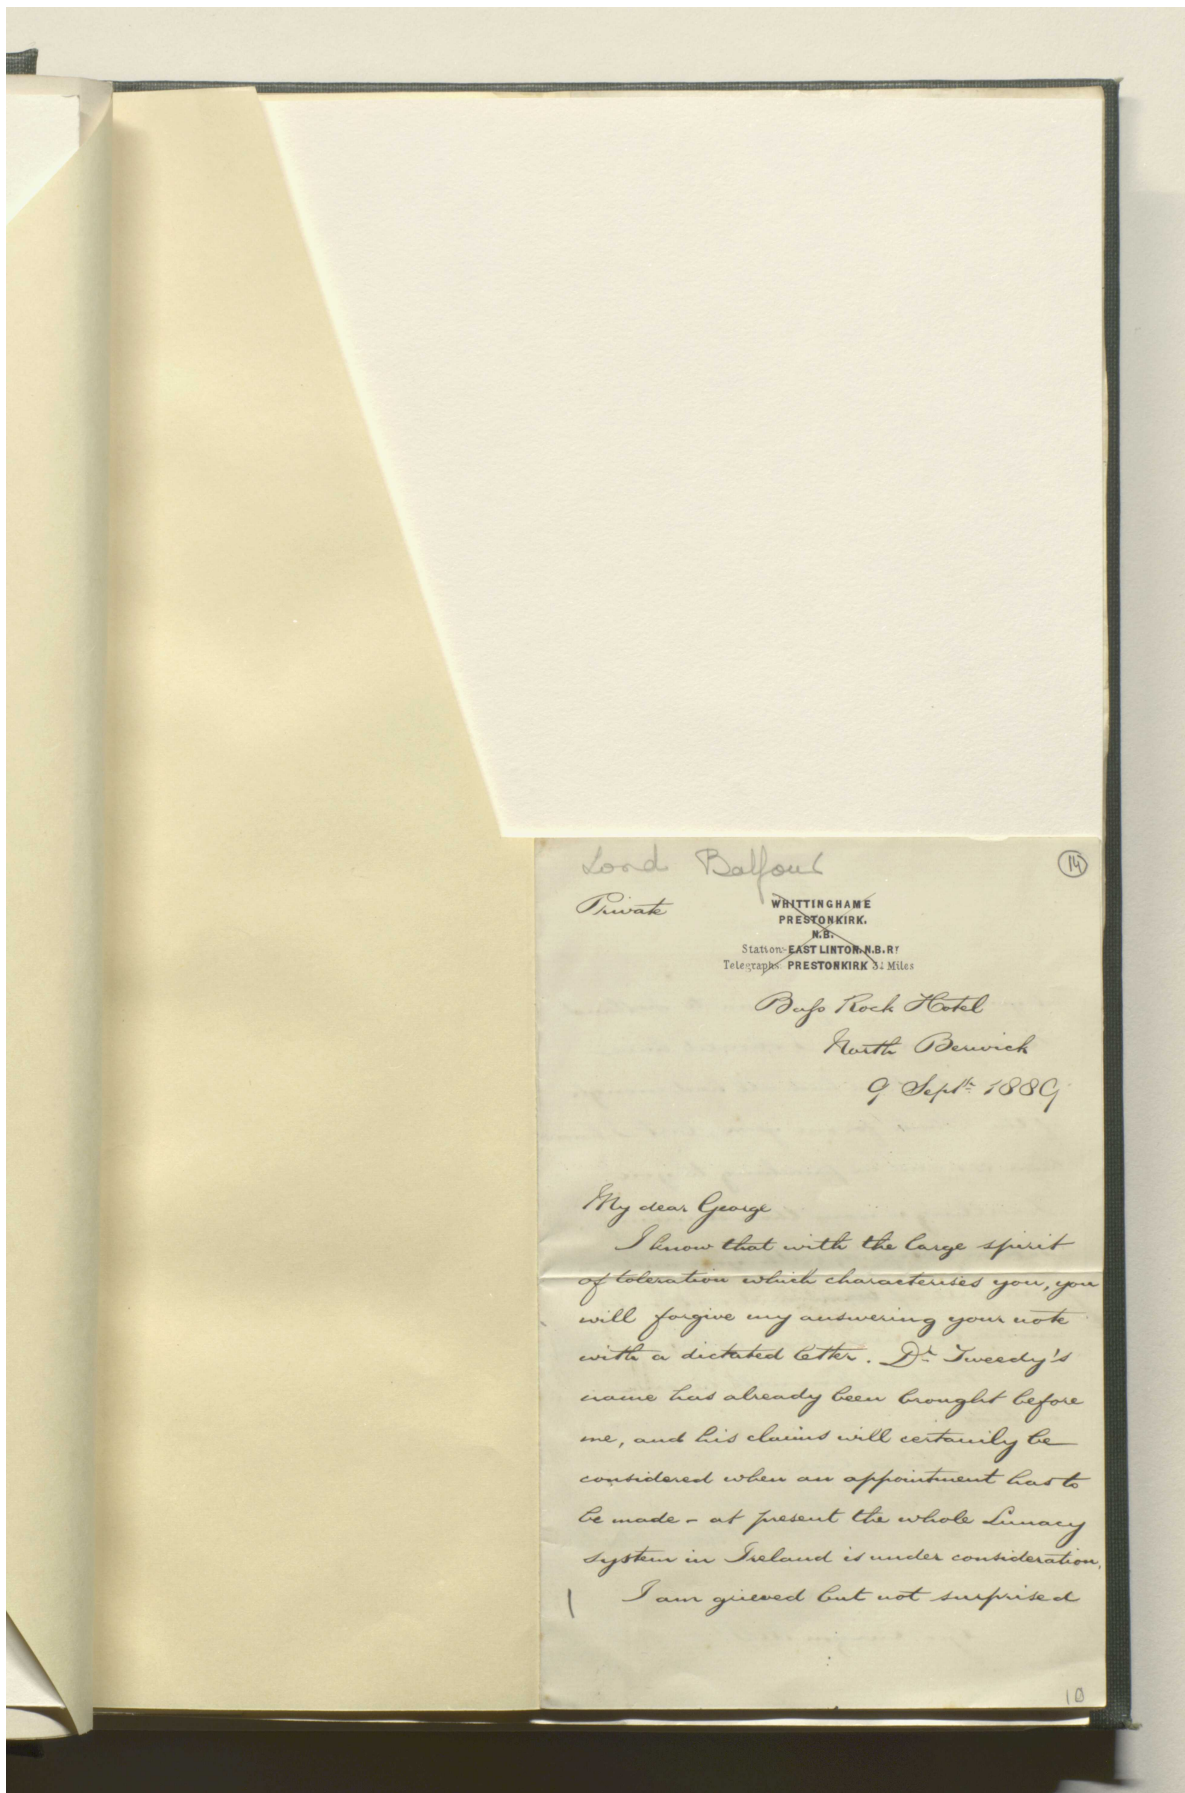 Lord Balfour
14
Private
WHITTINGHAME
PRESTONKIRK.
N.B.
Station:- EAST LINTON. N.B.Ry
Telegraphs: PRESTONKIRK 3½ Miles
Bass Rock Hotel
North Berwick
9 Septr. 1889
My dear George
I know that with the large spirit
of toleration which characterises you, you
will forgive my answering your note
with a dictated letter. Dr. Tweedy's
name has already been brought before
me, and his claims will certainly be
considered when an appointment has to
be made - at present the whole Lunacy
system in Ireland is under consideration.
I am grieved but not surprised
10